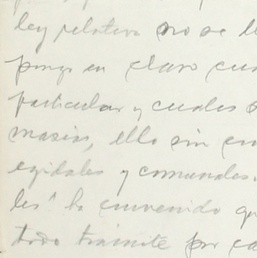 ley relativa no se le
ponga en claro cua
particular y cuales s
masías, ello sin em
egidales y comunales.
les" lo convenido qu
todo trámite por ca